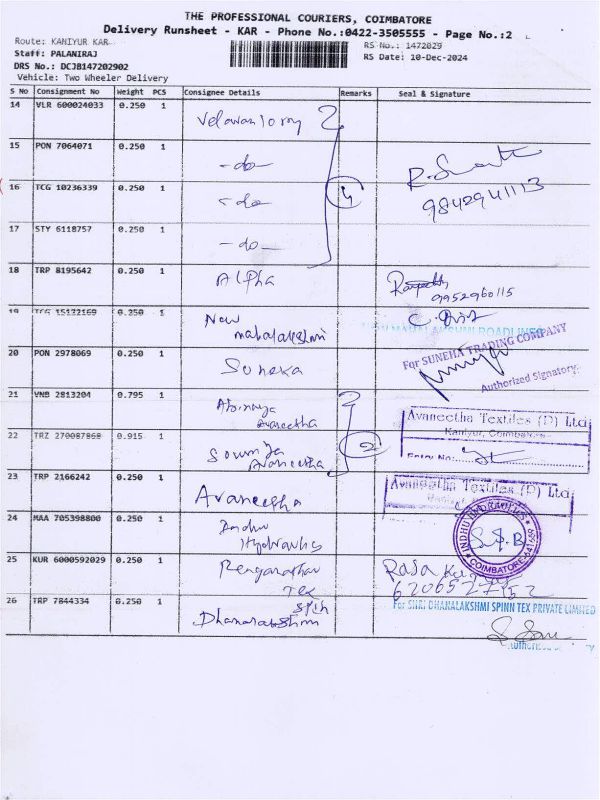 THE PROFESSIONAL COURIERS, COIMBATORE
Delivery Runsheet - KAR - Phone No.:0422-3505555 - Page No.:2
Route: KANIYUR KAR
RS No.: 1472029
Staff: PALANIRAJ
RS Date: 10-Dec-2024
DRS No.: DCJB147202902
Vehicle: Two Wheeler Delivery
S No Consignment No Weight PCS Consignee Details Remarks Seal & Signature
14 VLR 600024033 0.250 1
15 PON 7064071 0.250 1 -do-
9842941113
16 TCG 10236339 0.250 1 -do- 4
17 STY 6118757 0.250 1 -do-
18 TRP 8195642 0.250 1 Alpha
9952960115
19 TCG 15132169 0.250 1 New
mahalakshmi
NEW MAHALAKSHMI ROADLINES
20 PON 2978069 0.250 1 Suneka
For SUNEHA TRADING COMPANY
Authorized Signatory
21 VNB 2813204 0.795 1 Abinaya
Avaneetha
Avaneetha Textiles (P) Ltd
Kaniyur, Coimbatore
22 TRZ 270087868 0.915 1 Soumiya
Avaneetha
2
Entry No:
23 TRP 2166242 0.250 1 Avaneetha
Avaneetha Textiles (P) Ltd
24 MAA 705398800 0.250 1 Indhu
Hydraulics
INDHU HYDRAULICS
COIMBATORE-641659
25 KUR 6000592029 0.250 1 Renganathar
Tex
Raja
26 TRP 7844334 0.250 1 Spin
Dhanalakshmi
For SHRI DHANALAKSHMI SPINN TEX PRIVATE LIMITED